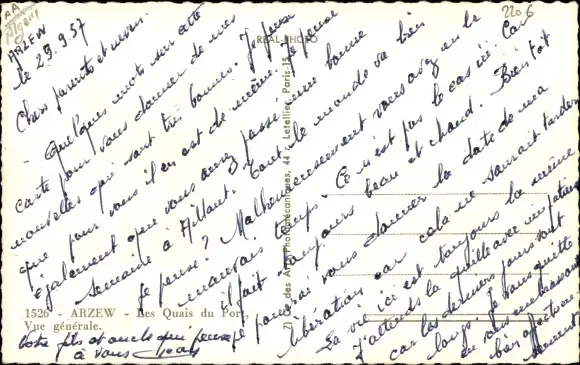 AA
Algérie
2206
ARZEW
le 25.9.57
Chers parents et neveu.
- Quelques mots sur cette
carte pour vous donner de mes
nouvelles qui sont très bonnes. Je pense
que pour vous il en est de même. Je pense
également que vous avez passé une bonne
semaine à Aillant. Tout le monde va bien
je pense? Malheureusement vous avez eu le
mauvais temps. Ce n'est pas le cas ici. Car
il fait toujours beau et chaud. Bientôt
je pourrai vous donner la date de ma
libération car cela ne saurait tarder.
La vie ici est toujours la même
J'attends la quille avec impatience
car les derniers jours sont
longs. Je vous quitte
en vous embrassant
bien affectueu-
sement
Votre fils et oncle qui pense
à vous
REAL-PHOTO
Cie des Arts Photomécaniques, 44, r. Letellier, Paris 15
1526 - ARZEW - Les Quais du Port,
Vue générale.